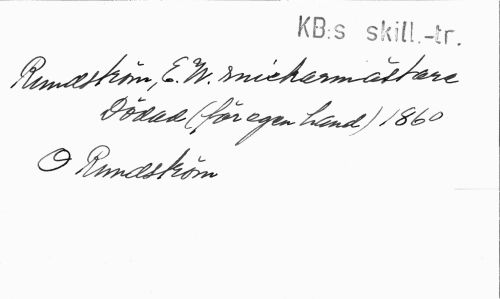 KB:s skill.-tr.
Rundström, E.W. snickarmästare
Dödad (för egen hand) 1860
O Rundström